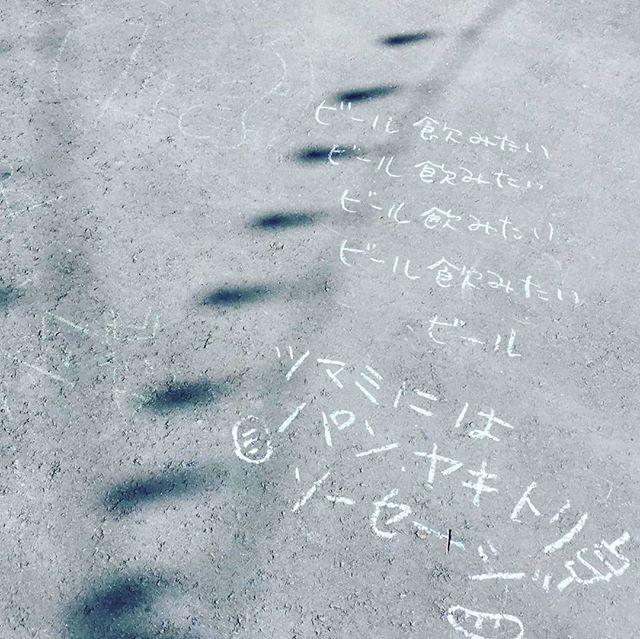 ビール飲みたい
ビール飲みたい
ビール飲みたい
ビール飲みたい
ビール
ツマミには
パン、ヤキトリ
ソーセージ